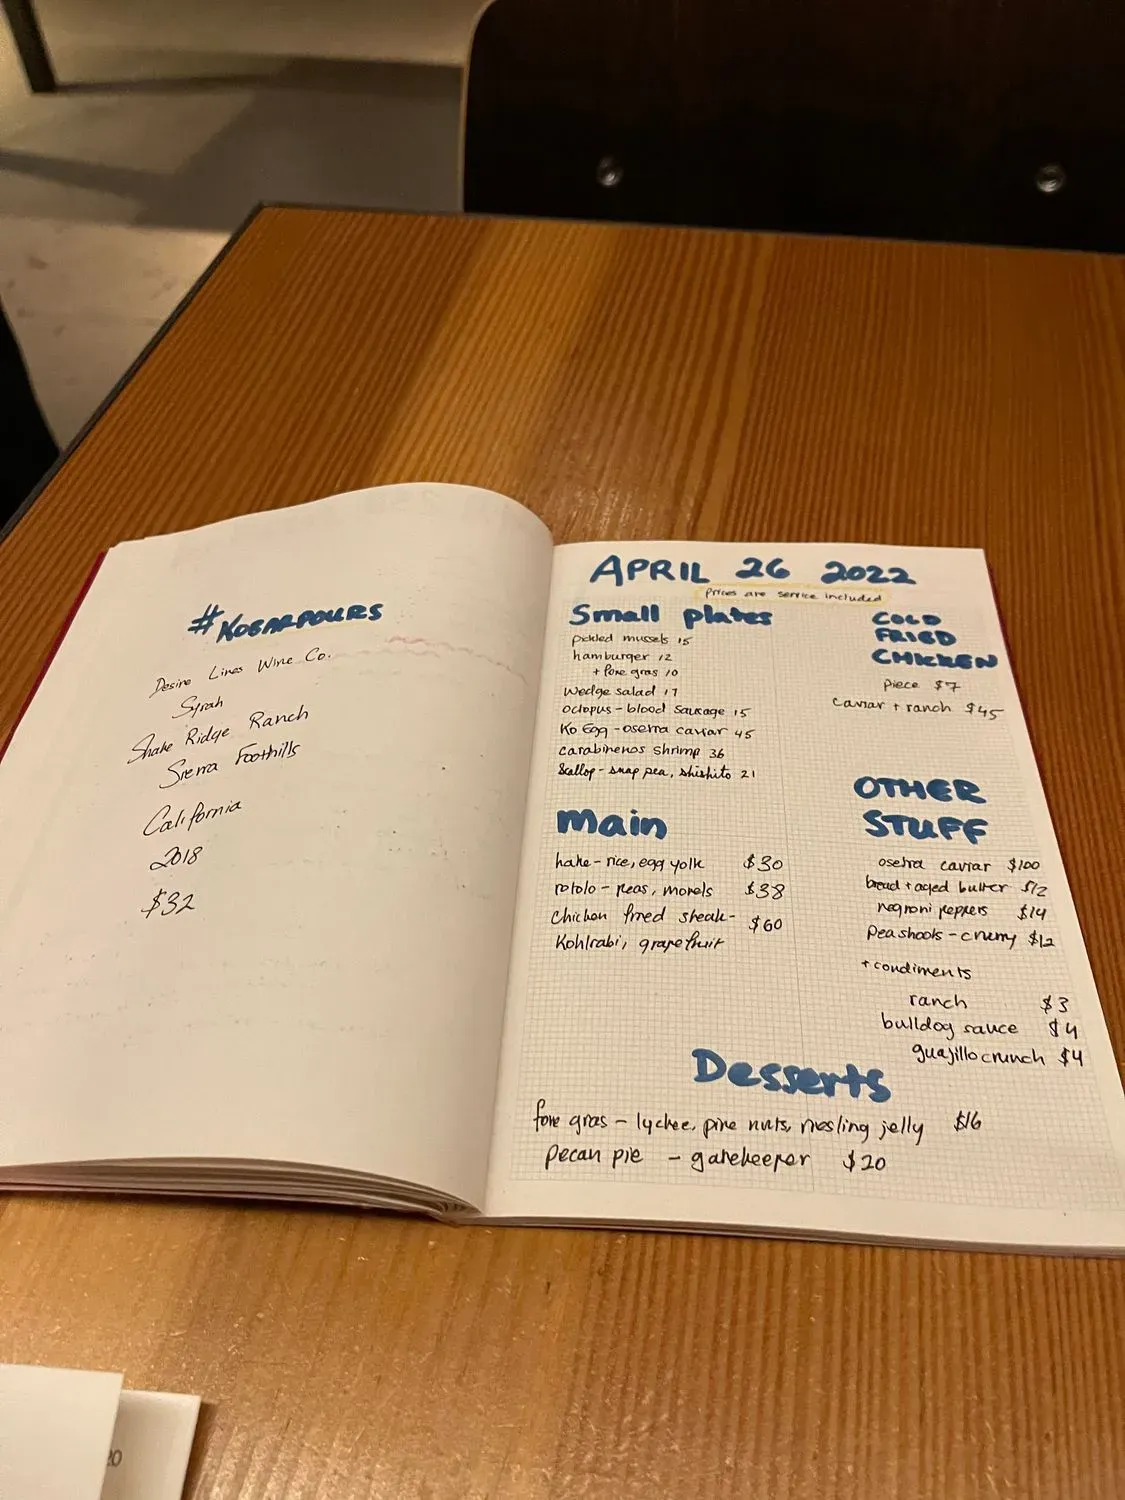 #KOBARPOURS
Desire Lines Wine Co.
Syrah
Shake Ridge Ranch
Sierra Foothills
California
2018
$32
APRIL 26 2022
Prices are service included
Small plates
pickled mussels 15
hamburger 12
+ foie gras 10
Wedge salad 17
octopus - blood sausage 15
Ko Egg - osetra caviar 45
carabineros shrimp 36
Scallop - snap pea, shishito 21
Main
hake - rice, egg yolk $30
rotolo - peas, morels $38
Chicken fried steak - $60
Kohlrabi, grapefruit
COLD
FRIED
CHICKEN
piece $7
caviar + ranch $45
OTHER
STUFF
osetra caviar $100
bread + aged butter $12
negroni peppers $14
Peashoots - crunny $12
+ condiments
ranch $3
bulldog sauce $4
guajillo crunch $4
Desserts
foie gras - lychee, pine nuts, riesling jelly $16
pecan pie - gatekeeper $20
20